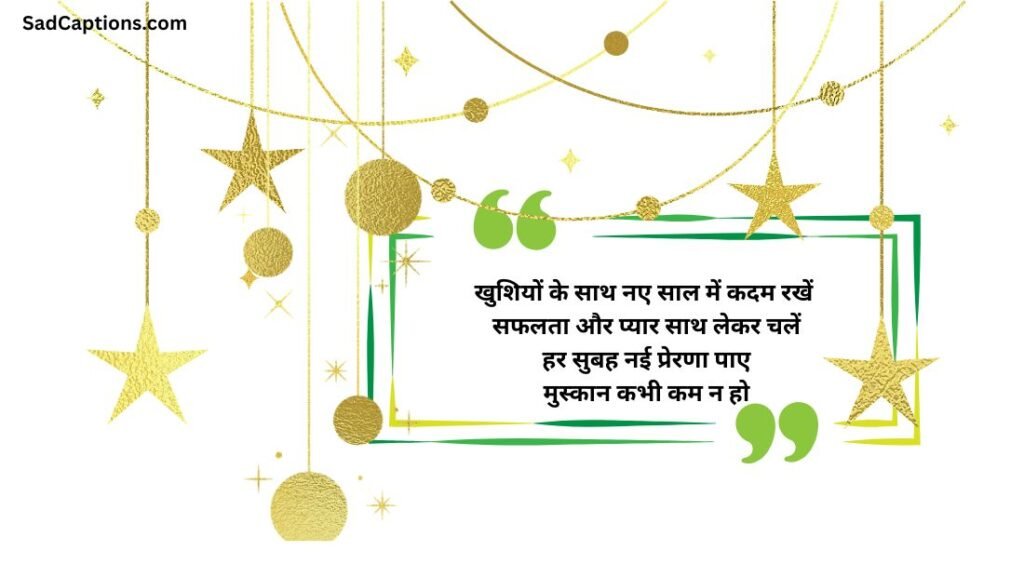 SadCaptions.com
खुशियों के साथ नए साल में कदम रखें
सफलता और प्यार साथ लेकर चलें
हर सुबह नई प्रेरणा पाए
मुस्कान कभी कम न हो